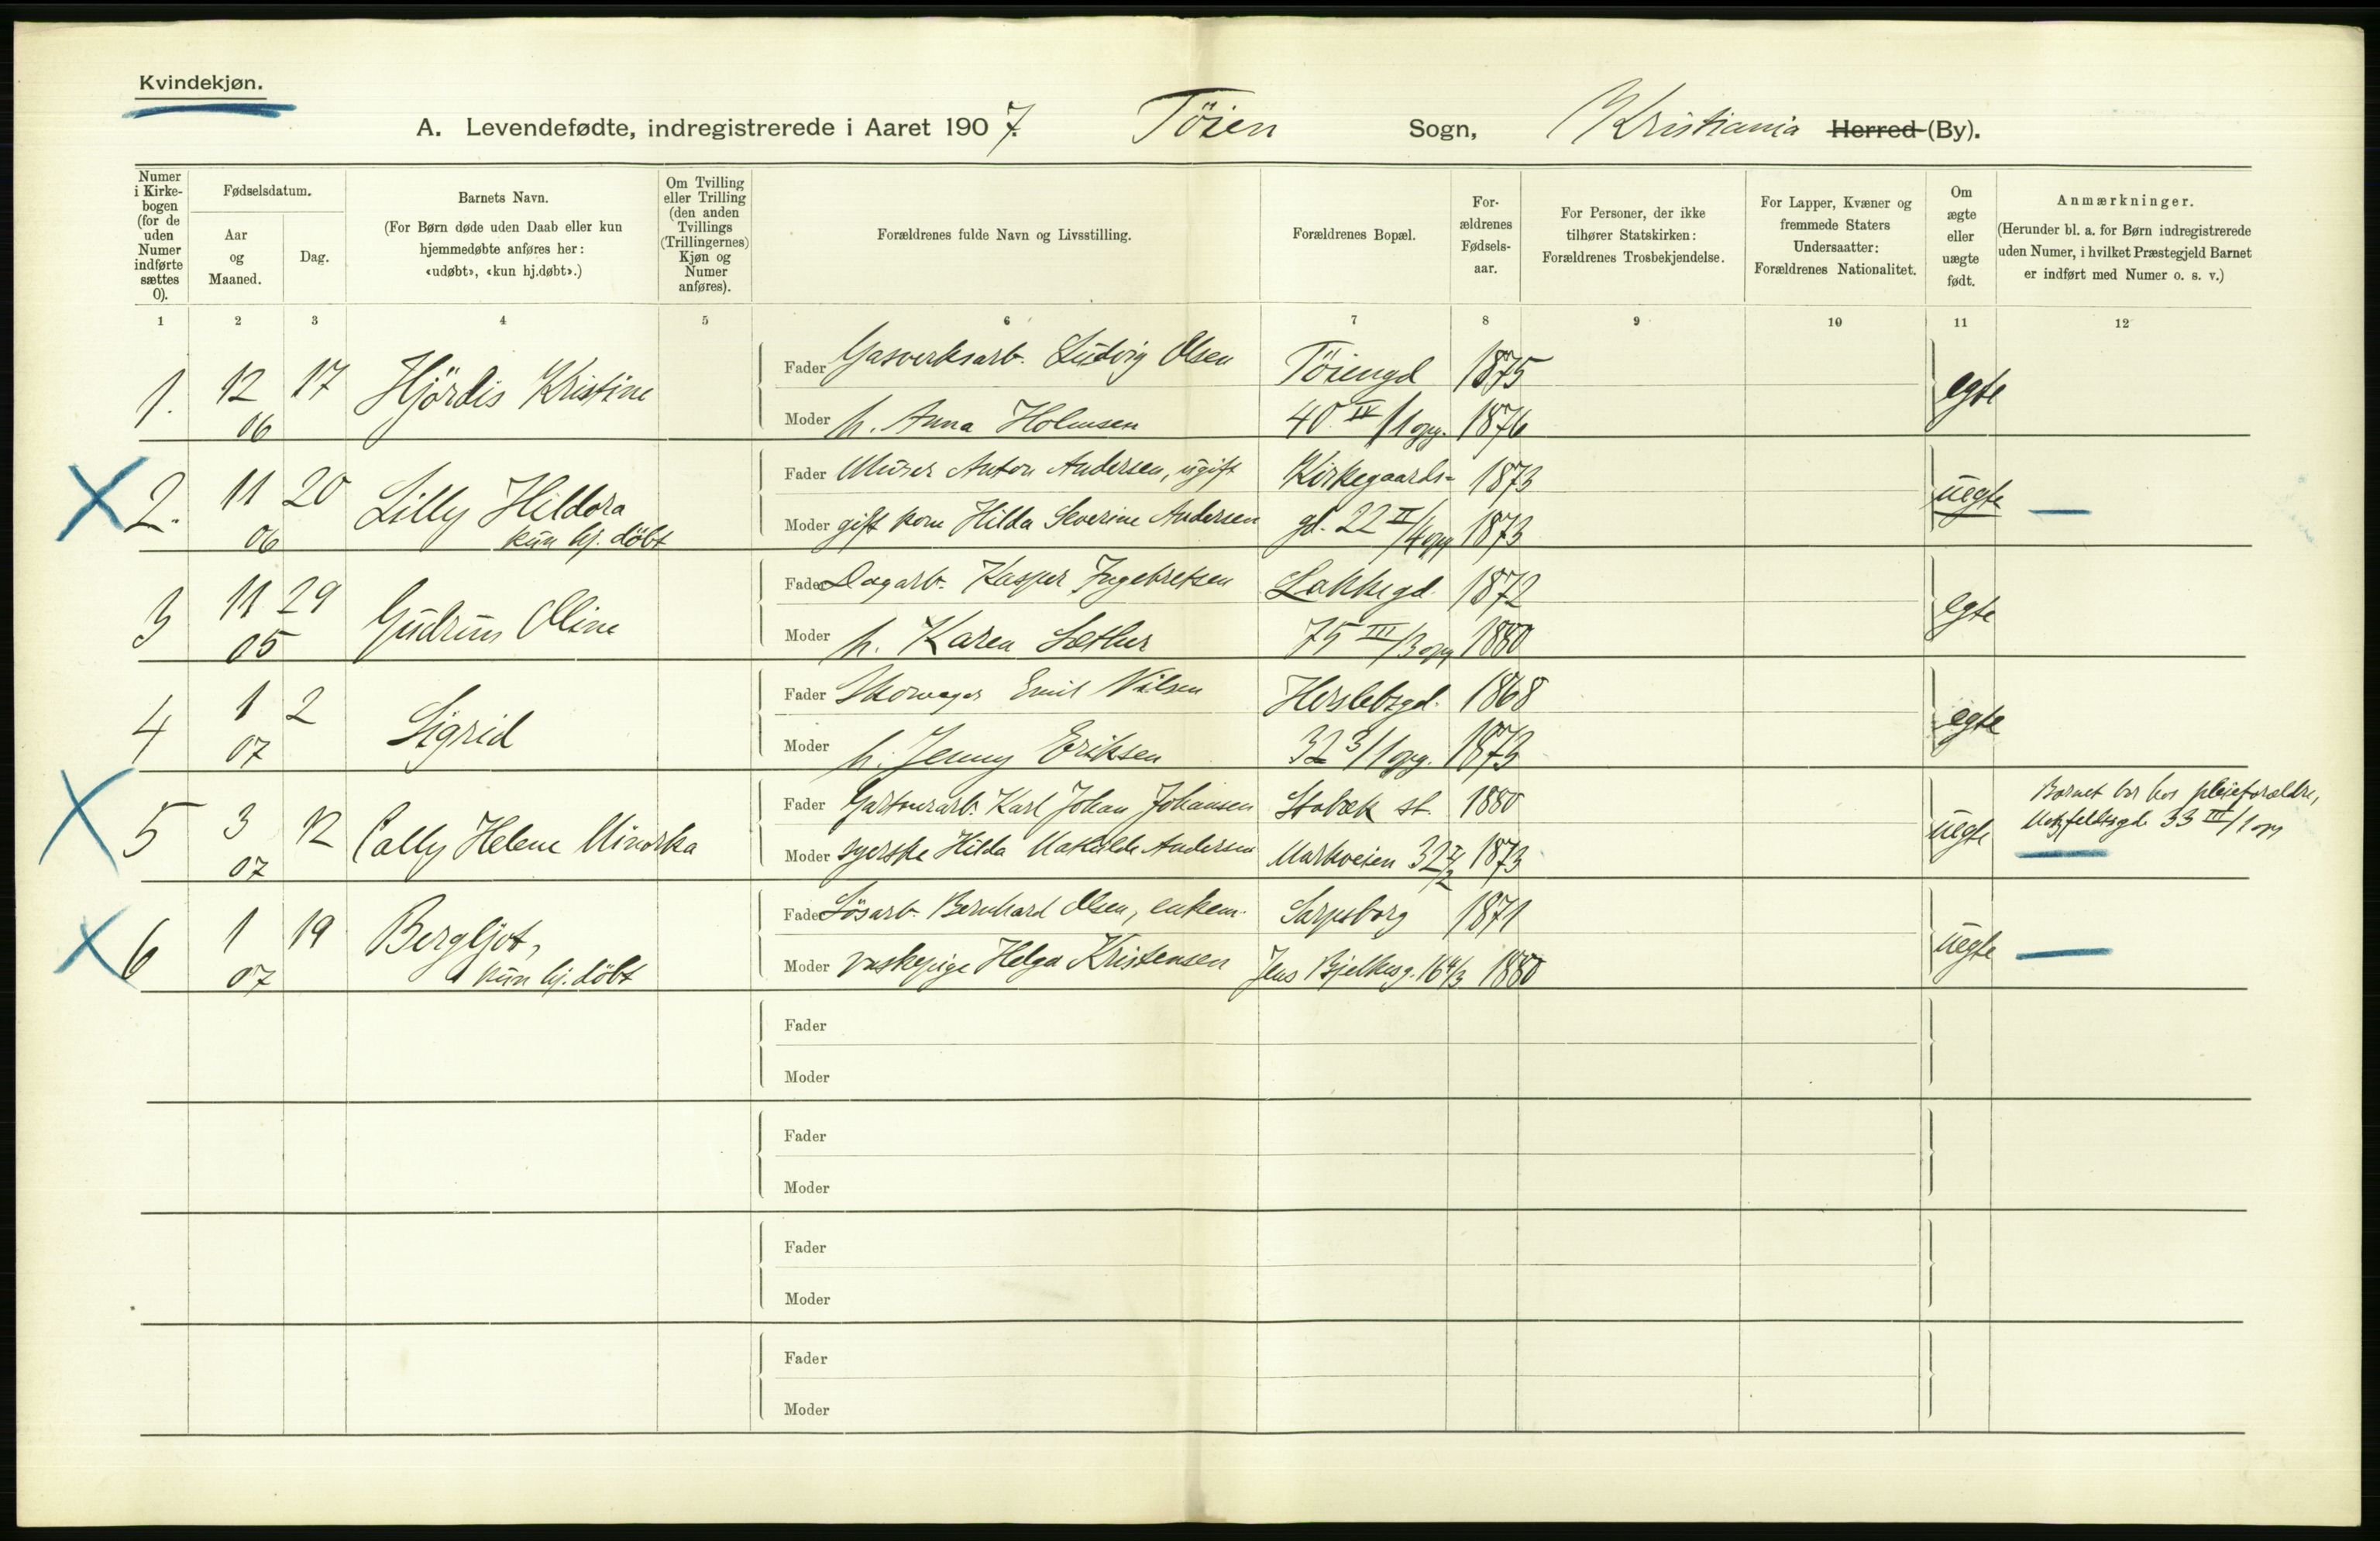 Kvindekjøn.
A. Levendefødte, indregistrerede i Aaret 1907. Töien Sogn, Kristiania Herred (By).
Numer i Kirkebogen (for de uden Numer indførte sættes 0).
Fødselsdatum.
Aar og Maaned.
Dag.
Barnets Navn.
(For Børn døde uden Daab eller kun
hjemmedøbte anføres her:
«udøbt», «kun hj.døbt».)
Om Tvilling
eller Trilling
(den anden
Tvillings
(Trillingernes)
Kjøn og
Numer
anføres).
Forældrenes fulde Navn og Livsstilling.
Forældrenes Bopæl.
For-
ældrenes
Fødsels-
aar.
For Personer, der ikke
tilhører Statskirken:
Forældrenes Trosbekjendelse.
For Lapper, Kvæner og
fremmede Staters
Undersaatter:
Forældrenes Nationalitet.
Om
ægte
eller
uægte
født.
Anmærkninger.
(Herunder bl. a. for Børn indregistrerede
uden Numer, i hvilket Præstegjeld Barnet
er indført med Numer o. s. v.)
1 2 3 4 5 6 7 8 9 10 11 12
1. 12 17 Hjördis Kristine
06
Fader Gasverksarb. Ludvig Olsen Töiengd 1875
Moder h. Anna Holmsen 40 IV/1 opg. 1876
egte
2. 11 20 Lilly Hildora
06 kun hj. döbt
Fader Murer Anton Andersen, ugift Kirkegaards- 1873
Moder gift kone Hilda Severine Andersen gd. 22 II/4 opg 1873
uegte —
3 11 29 Gudrun Oline
05
Fader Dagarb. Kasper Ingebretsen Lakkegd. 1872
Moder h. Karen Sæther 75 III/3 opg 1880
egte
4 1 2 Sigrid
07
Fader Emil Nilsen Herslebsgd. 1868
Moder h. Jenny Eriksen 32 3/1 opg. 1873
egte
5 3 12 Cally Helene Minorka
07
Fader Gartnerarb. Karl Johan Johansen Stabæk st. 1880
Moder syerske Hilda Mathilde Andersen Markveien 32 1873
uegte
Barnet bor hos pleieforældre,
33 III/1 opg
6 1 19 Bergljot,
07 kun hj. döbt
Fader Løsarb. Bernhard Olsen, enkem. Sarpsborg 1871
Moder vaskepige Helga Kristensen Jens Bjelkesg. 16 4/3 1880
uegte —
Fader
Moder
Fader
Moder
Fader
Moder
Fader
Moder